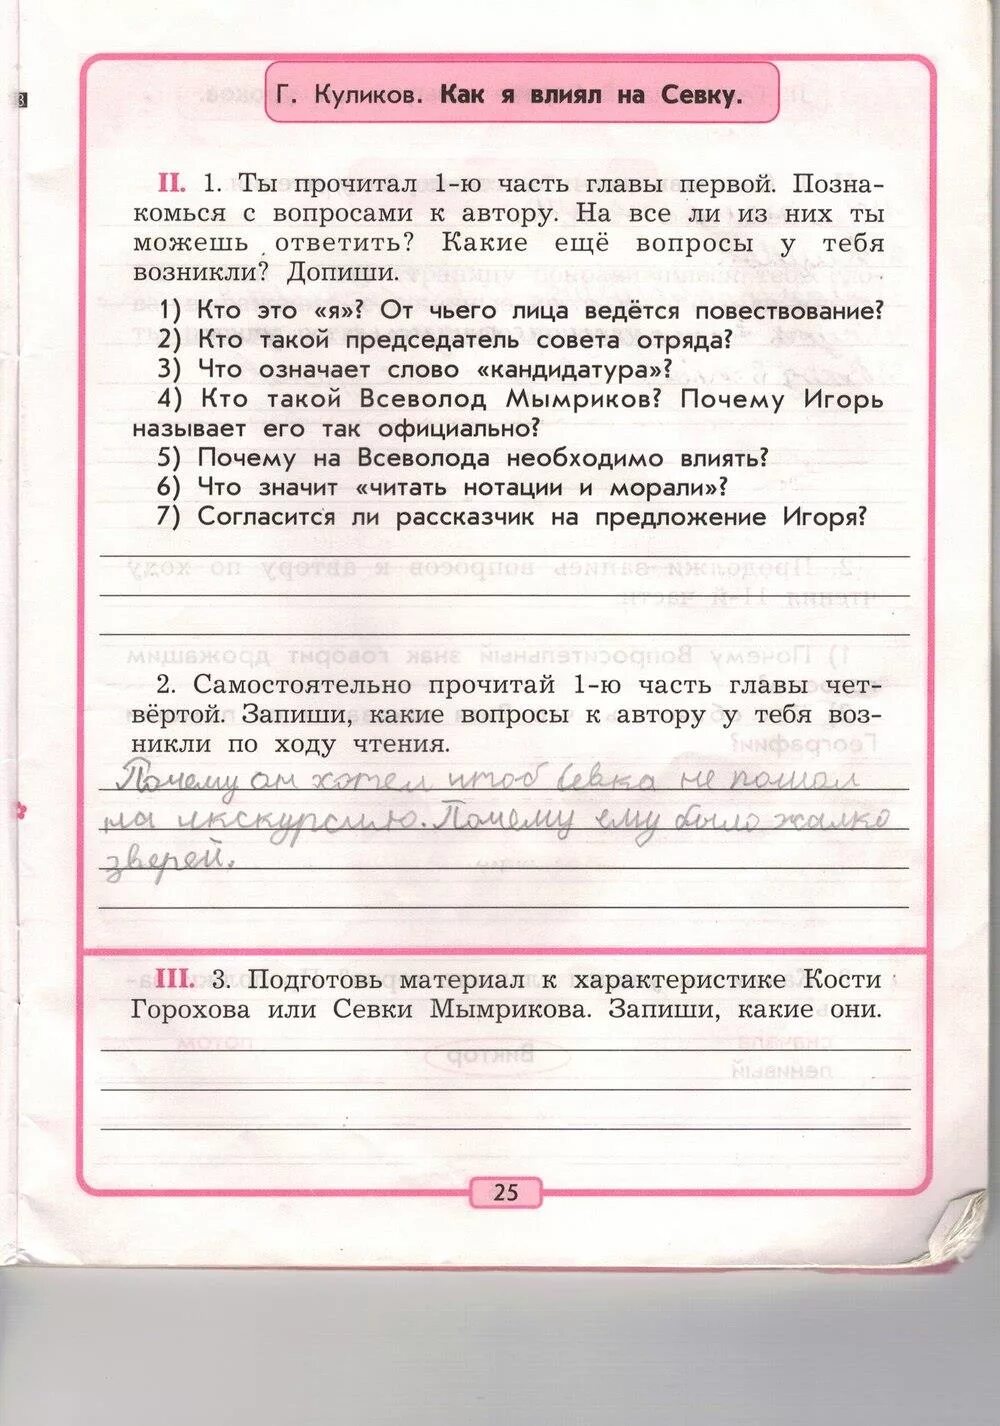 Г. Куликов. Как я влиял на Севку.
II. 1. Ты прочитал 1-ю часть главы первой. Позна-
комься с вопросами к автору. На все ли из них ты
можешь ответить? Какие ещё вопросы у тебя
возникли? Допиши.
1) Кто это «я»? От чьего лица ведётся повествование?
2) Кто такой председатель совета отряда?
3) Что означает слово «кандидатура»?
4) Кто такой Всеволод Мымриков? Почему Игорь
называет его так официально?
5) Почему на Всеволода необходимо влиять?
6) Что значит «читать нотации и морали»?
7) Согласится ли рассказчик на предложение Игоря?
2. Самостоятельно прочитай 1-ю часть главы чет-
вёртой. Запиши, какие вопросы к автору у тебя воз-
никли по ходу чтения.
Почему он хотел чтоб Севка не пошол
на икскурсию. Почему ему было жалко
зверей.
III. 3. Подготовь материал к характеристике Кости
Горохова или Севки Мымрикова. Запиши, какие они.
25